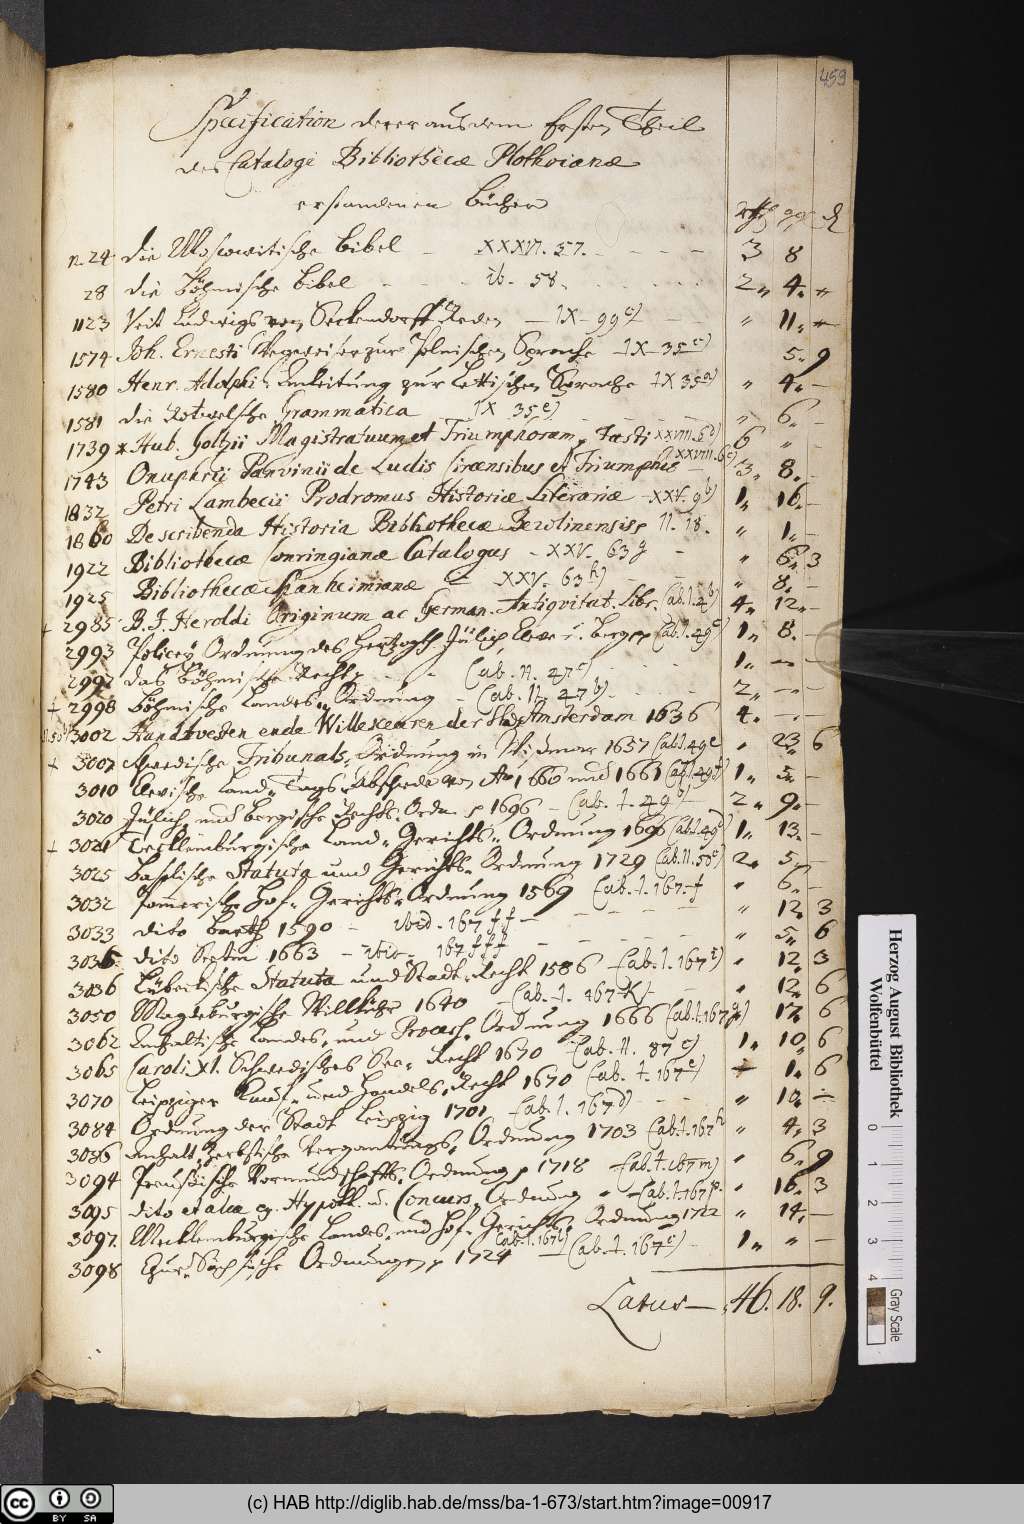 459
Specification derer aus dem Ersten Theil
des Catalogi Bibliothecæ Plothoianæ
erstandenen Bücher
n. 24 die Moscowitische Bibel - XXXVI. 57. - - - - 3 8
28 die Böhmische Bibel - - - ib. 58. - - - 2 4
1123 Veit Ludwigs von Seckendorff Reden - IX - 99 c) - - 11
1574 Joh. Ernesti Wegweiser zur Polnischen Sprache - IX - 35 c) 5. 9
1580 Henr. Adolphi Anleitung zur Lettischen Sprache IX 35 a) 4. -
1581 die Rotwelsche Grammatica IX 35 e) 6. -
1739 * Hub. Goltzii Magistratuum et Triumphorum Fasti XXVIII. 5 b) 6
1743 Onuphrii Panvinii de Ludis Circensibus et Triumphis XXVIII. 6 c) 3. 8. -
1832 Petri Lambecii Prodromus Historiæ Literariæ - XXV. 9 b) 1. 16. -
1860 Describenda Historia Bibliothecæ Berolinensis II. 18. 1. -
1922 Bibliothecæ Conringianæ Catalogus - XXV. 63 g - 6. 3
1925 Bibliothecæ Spanheimianæ - XXV. 63 h) 8. -
+ 2985 B. J. Heroldi Originum ac German. Antiquitat. Libr. Cab. I. 4 b) 4. 12. -
2993 Policey Ordnung des Hertzogth. Jülich, Cleve u. Berg Cab. I. 49 c) 1. 8. -
2997 das Böhmische Recht - - - Cab. II. 47 c) 1. - -
+ 2998 Böhmische Landes Ordnung - Cab. II. 47 b) 2. - -
3002 Handtvesten ende Willekeuren der Stadt Amsterdam 1636 4. - -
+ 3007 Schwedische Tribunals, Ordnung in Wismar 1657 Cab. I. 49 e 23. 6
3010 Clevische Land-Tags-Abschiede von Ao 1660 und 1661 Cab. I. 49 1. 5. -
3020 Jülich und Bergische Rechts-Ordn. 1696 - Cab. I. 49 2. 9. -
+ 3021 Tecklenburgische Land-Gerichts-Ordnung 1696 Cab. I. 49 1. 13. -
3025 Baselische Statuta und Gerichts-Ordnung 1729 Cab. II. 50 c) 2. 5. -
3032 Pommerische Hof-Gerichts-Ordnung 1569 Cab. I. 167-f 6. -
3033 dito Barth 1590 - ibid. 167 ff - - - - 12. 3
3035 dito 1663 - ibid. 167 fff - - - 5. 6
3036 Lübeckische Statuta und Stadt-Recht 1586 - Cab. I. 167 12. 3
3050 Magdeburgische Willkühr 1640 - Cab. I. 167-K) - 12 6
3062 Anhaltische Landes- und Process-Ordnung 1666 Cab. I. 167 g) 12 6
3065 Caroli XI. Schwedisches See-Recht 1670 - Cab. II. 87 c) 1. 10. 6
3070 Leipziger Kauf- und Handels-Recht 1670 Cab. I. 167 e) 1. 6
3084 Ordnung der Stadt Leipzig 1701 - Cab. I. 167 d) - - - 10. -
3086 Anhalt-Zerbstische Vergantungs-Ordnung 1703 Cab. I. 167 h 4. 3
3094 Preussische Vormundschafts-Ordnung 1718 - Cab. I. 167 m) 6. 9
3095 dito et alia Hypoth. u. Concurs Ordnung - Cab. I. 167 p. 16. 3
3097. Mecklenburgische Landes- und Hof-Gerichts Ordnung 1722 14. -
Cab. I. 167 b)
3098 Chur-Sächsische Ordnungen 1724 Cab. I. 167 c) - 1. -
Latus - 46. 18. 9.
Herzog August Bibliothek
Wolfenbüttel
0 1 2 3 4
Gray Scale
cc BY SA
(c) HAB http://diglib.hab.de/mss/ba-1-673/start.htm?image=00917